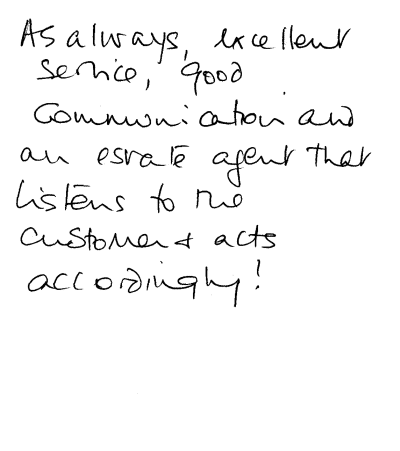 As always, excellent
service, good
communication and
an estate agent that
listens to the
customer & acts
accordingly!